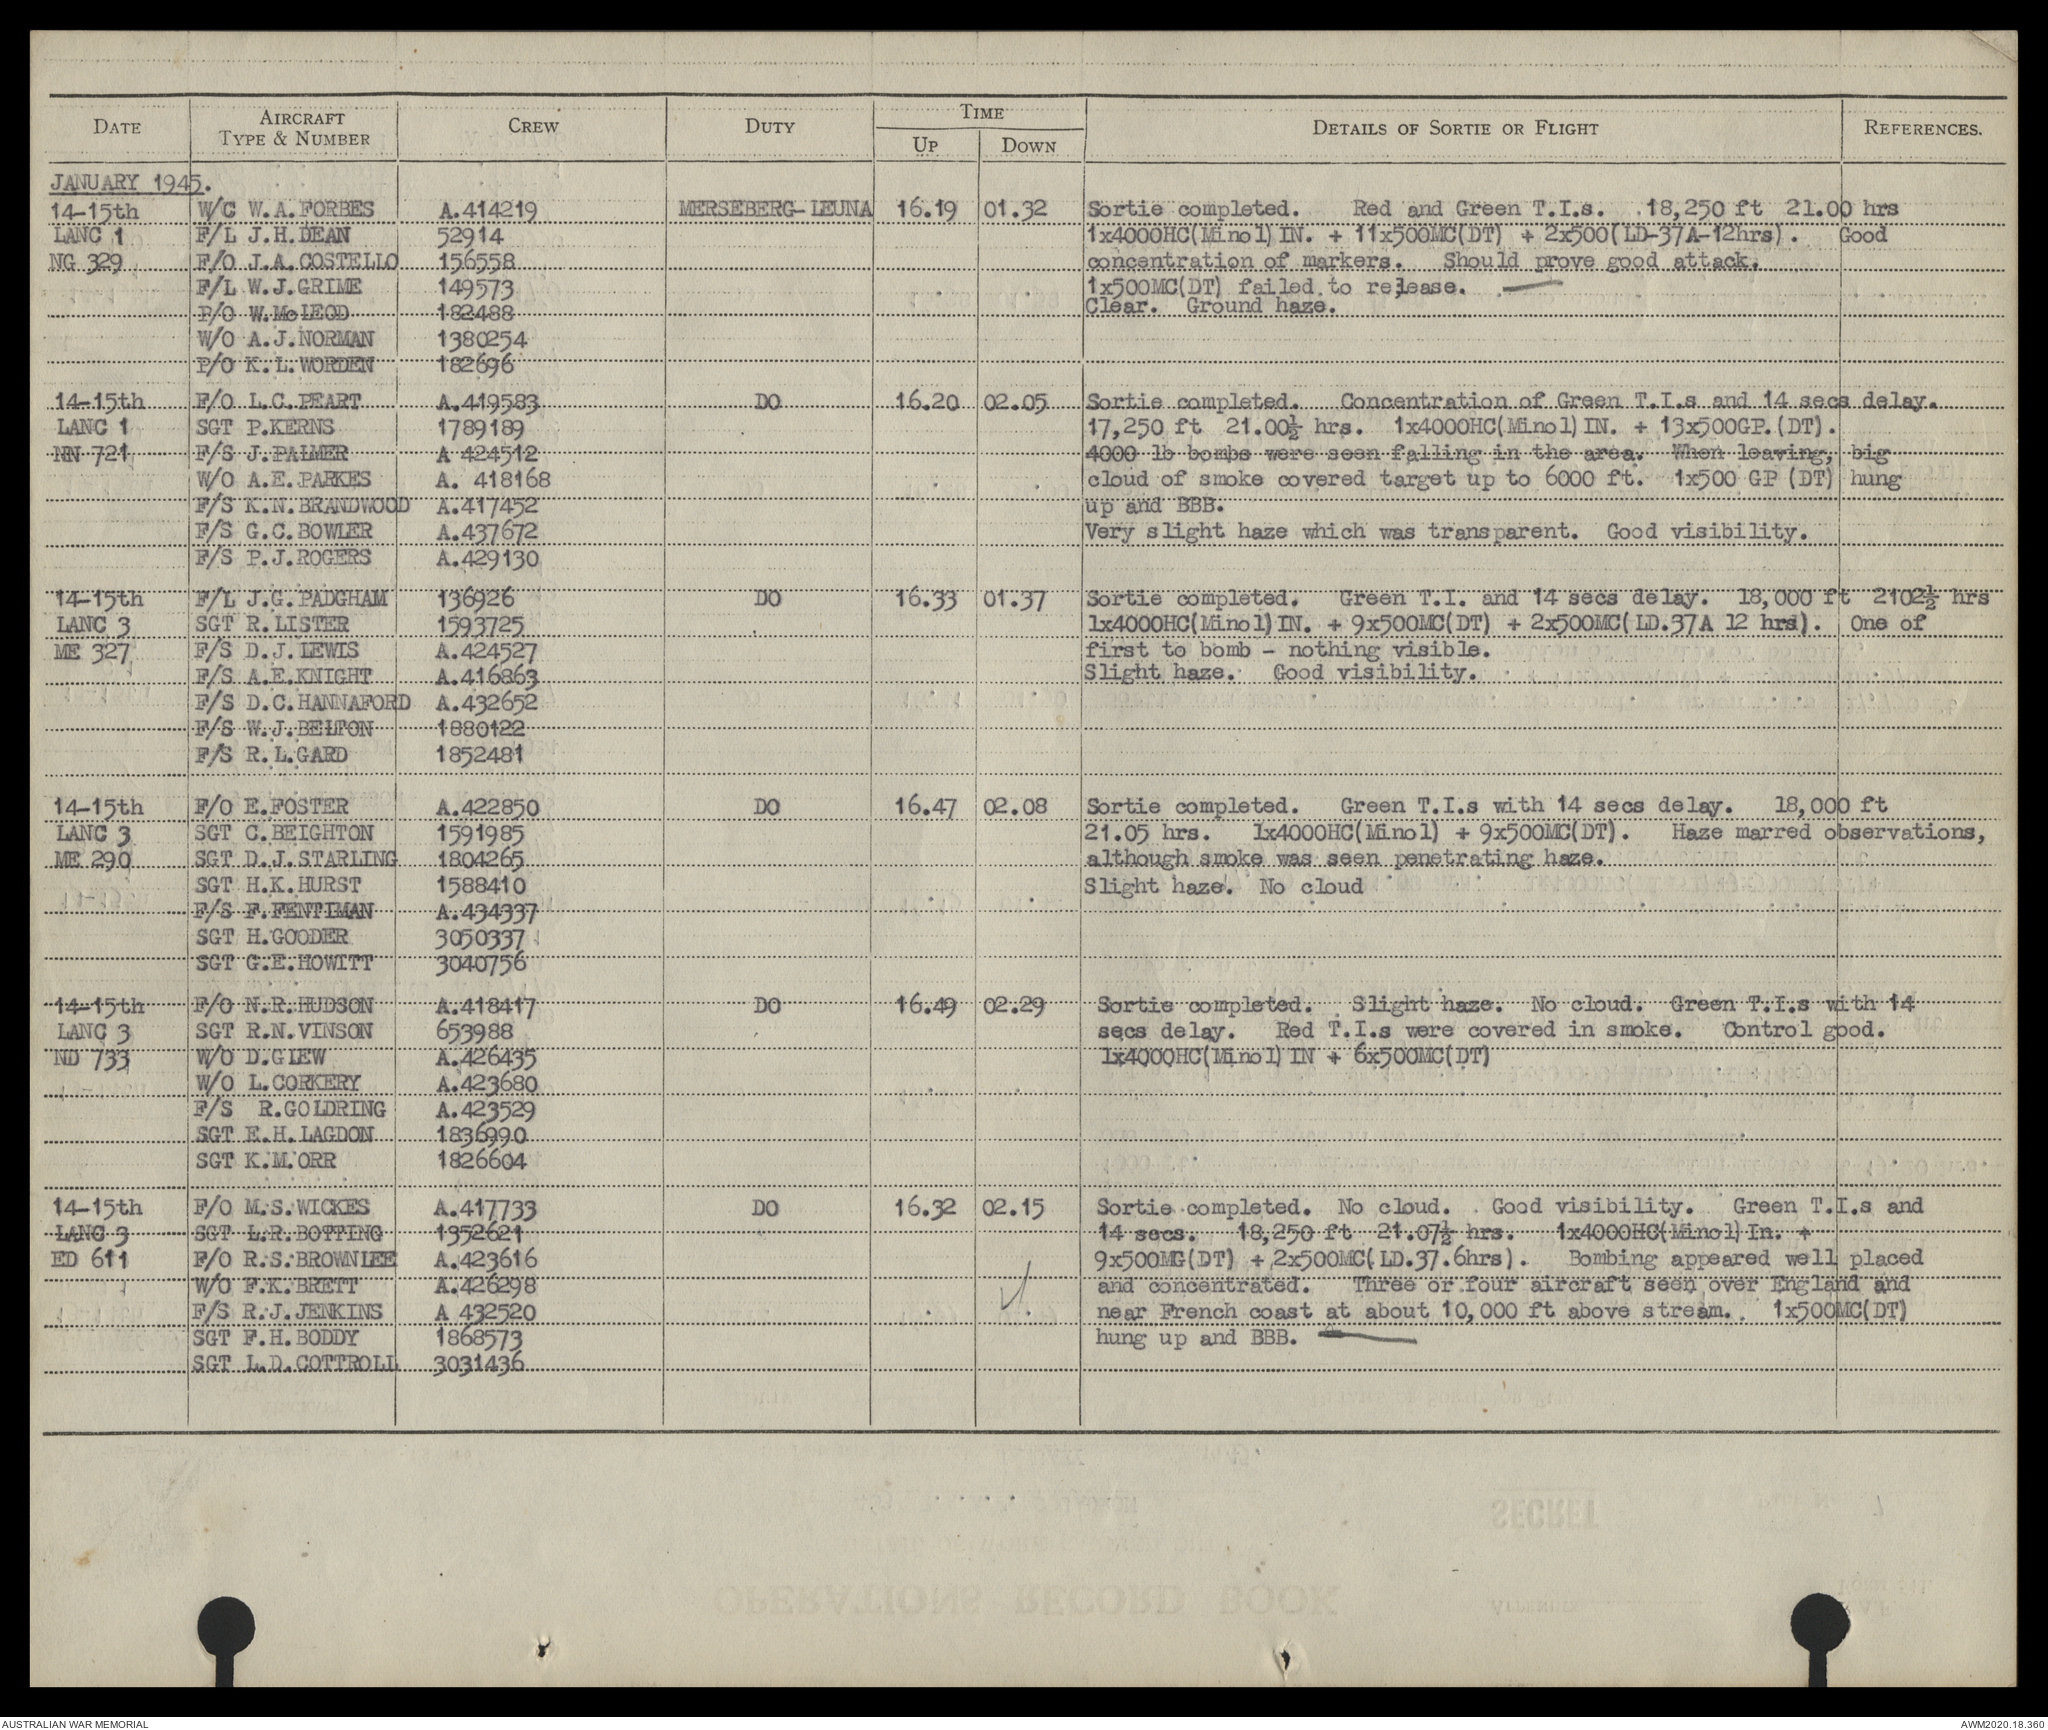 DATE AIRCRAFT TYPE & NUMBER CREW DUTY TIME UP DOWN DETAILS OF SORTIE OR FLIGHT REFERENCES.
JANUARY 1945.
14-15th W/C W.A.FORBES A.414219 MERSEBERG-LEUNA 16.19 01.32 Sortie completed. Red and Green T.I.s. 18,250 ft 21.00 hrs
LANC 1 F/L J.H.DEAN 52914 1x4000HC(Minol)IN. + 11x500MC(DT) + 2x500(LD-37A-12hrs). Good
NG 329 F/O J.A.COSTELLO 156558 concentration of markers. Should prove good attack.
F/L W.J.GRIME 149573 1x500MC(DT) failed to release.
P/O W.McLEOD 182488 Clear. Ground haze.
W/O A.J.NORMAN 1380254
P/O K.L.WORDEN 182696
14-15th F/O L.C.PEART A.419583 DO 16.20 02.05 Sortie completed. Concentration of Green T.I.s and 14 secs delay.
LANC 1 SGT P.KERNS 1789189 17,250 ft 21.00½ hrs. 1x4000HC(Minol)IN. + 13x500GP.(DT).
NN 721 F/S J.PALMER A 424512 4000 lb bombs were seen falling in the area. When leaving, big
W/O A.E.PARKES A. 418168 cloud of smoke covered target up to 6000 ft. 1x500 GP (DT) hung
F/S K.N.BRANDWOOD A.417452 up and BBB.
F/S G.C.BOWLER A.437672 Very slight haze which was transparent. Good visibility.
F/S P.J.ROGERS A.429130
14-15th F/L J.G.PADGHAM 136926 DO 16.33 01.37 Sortie completed. Green T.I. and 14 secs delay. 18,000 ft 2102½ hrs
LANC 3 SGT R.LISTER 1593725 1x4000HC(Minol)IN. + 9x500MC(DT) + 2x500MC(LD.37A 12 hrs). One of
ME 327 F/S D.J.LEWIS A.424527 first to bomb - nothing visible.
F/S A.E.KNIGHT A.416863 Slight haze. Good visibility.
F/S D.C.HANNAFORD A.432652
F/S W.J.BELTON 1880122
F/S R.L.GARD 1852481
14-15th F/O E.FOSTER A.422850 DO 16.47 02.08 Sortie completed. Green T.I.s with 14 secs delay. 18,000 ft
LANC 3 SGT C.BEIGHTON 1591985 21.05 hrs. 1x4000HC(Minol) + 9x500MC(DT). Haze marred observations,
ME 290 SGT D.J.STARLING 1804265 although smoke was seen penetrating haze.
SGT H.K.HURST 1588410 Slight haze. No cloud
F/S F.FENTIMAN A.434337
SGT H.GOODER 3050337
SGT G.E.HOWITT 3040756
14-15th F/O N.R.HUDSON A.418417 DO 16.49 02.29 Sortie completed. Slight haze. No cloud. Green T.I.s with 14
LANC 3 SGT R.N.VINSON 653988 secs delay. Red T.I.s were covered in smoke. Control good.
ND 733 W/O D.GLEW A.426435 1x4000HC(Minol)IN + 6x500MC(DT)
W/O L.CORKERY A.423680
F/S R.GOLDRING A.423529
SGT E.H.LAGDON 1836990
SGT K.M.ORR 1826604
14-15th F/O M.S.WICKES A.417733 DO 16.32 02.15 Sortie completed. No cloud. Good visibility. Green T.I.s and
LANC 3 SGT L.R.BOTTING 1352621 14 secs. 18,250 ft 21.07½ hrs. 1x4000HC(Minol)In. +
ED 611 F/O R.S.BROWNLEE A.423616 9x500MG(DT) + 2x500MC(LD.37.6hrs). Bombing appeared well placed
W/O F.K.BRETT A.426298 and concentrated. Three or four aircraft seen over England and
F/S R.J.JENKINS A 432520 near French coast at about 10,000 ft above stream. 1x500MC(DT)
SGT F.H.BODDY 1868573 hung up and BBB.
SGT L.D.COTTROLL 3031436
AUSTRALIAN WAR MEMORIAL AWM2020.18.360